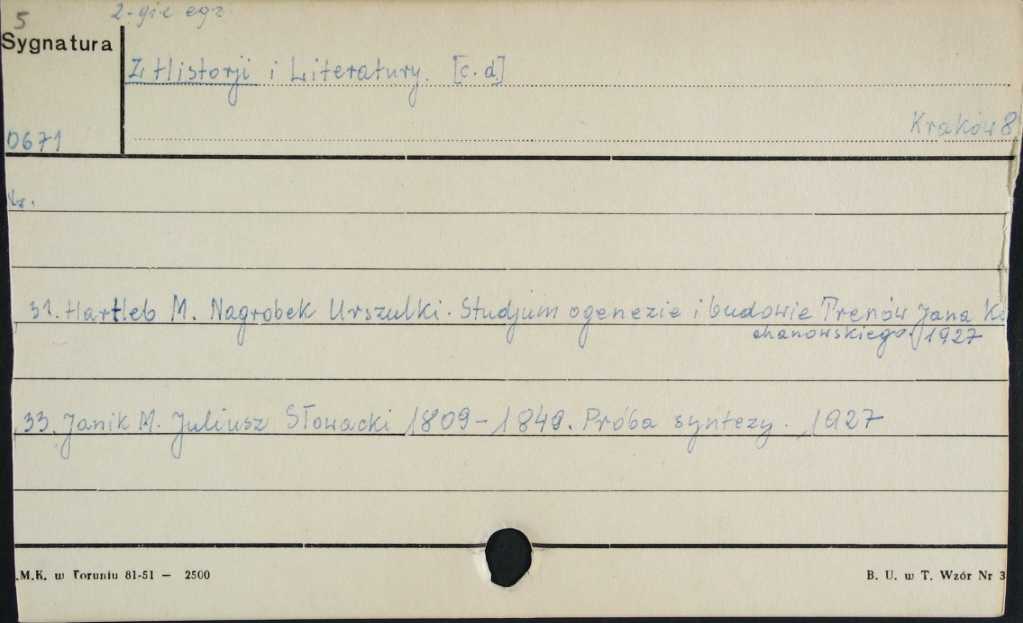 5 2-gie egz.
Sygnatura
Z Historji i Literatury. [c.d.]
Kraków 8
0671
Nr.
31. Hartleb M. Nagrobek Urszulki. Studjum o genezie i budowie Trenów Jana Ko
chanowskiego. 1927
33. Janik M. Juliusz Słowacki 1809-1849. Próba syntezy. 1927
.M.K. w Toruniu 81-51 — 2500
B. U. w T. Wzór Nr 3